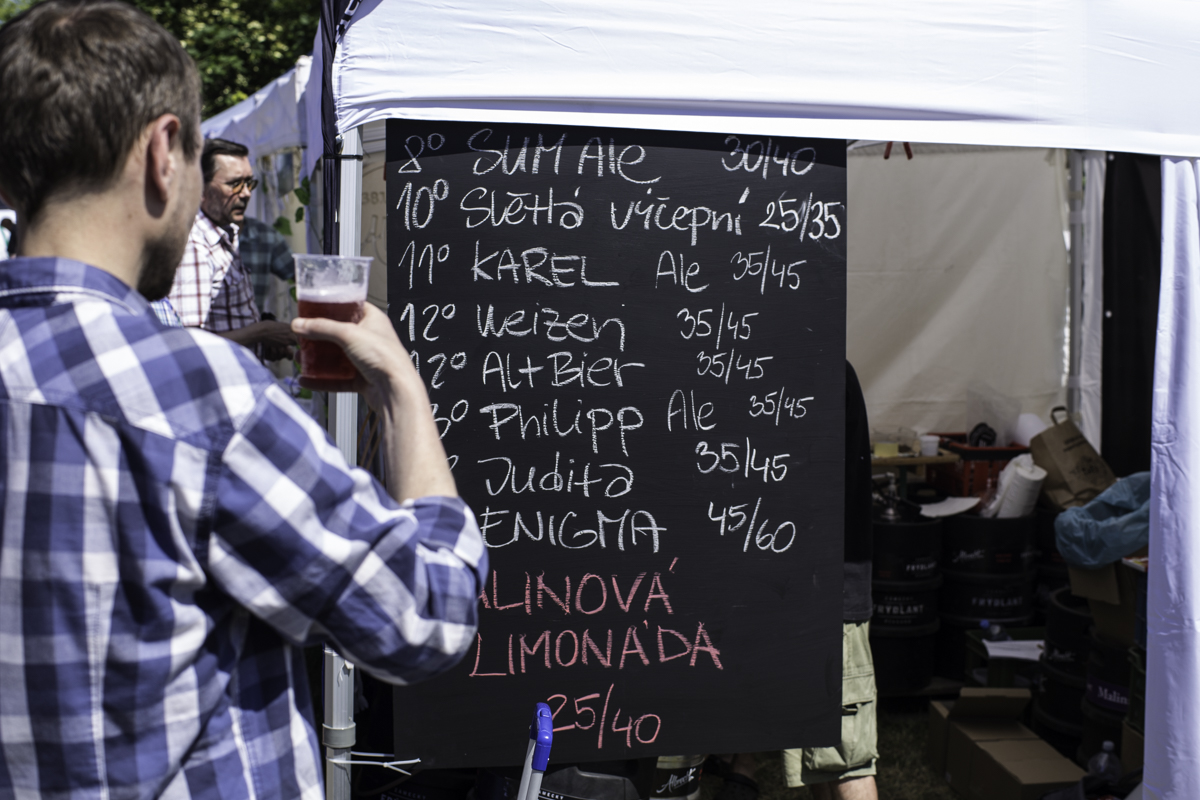 8° SUM Ale 30/40
10° Světlá výčepní 25/35
11° KAREL Ale 35/45
12° Weizen 35/45
12° Alt Bier 35/45
3° Philipp Ale 35/45
° Judita 35/45
ENIGMA 45/60
ALINOVÁ
LIMONÁDA
25/40
FRYDLANT
FRYDLANT
Malin
Albrecht